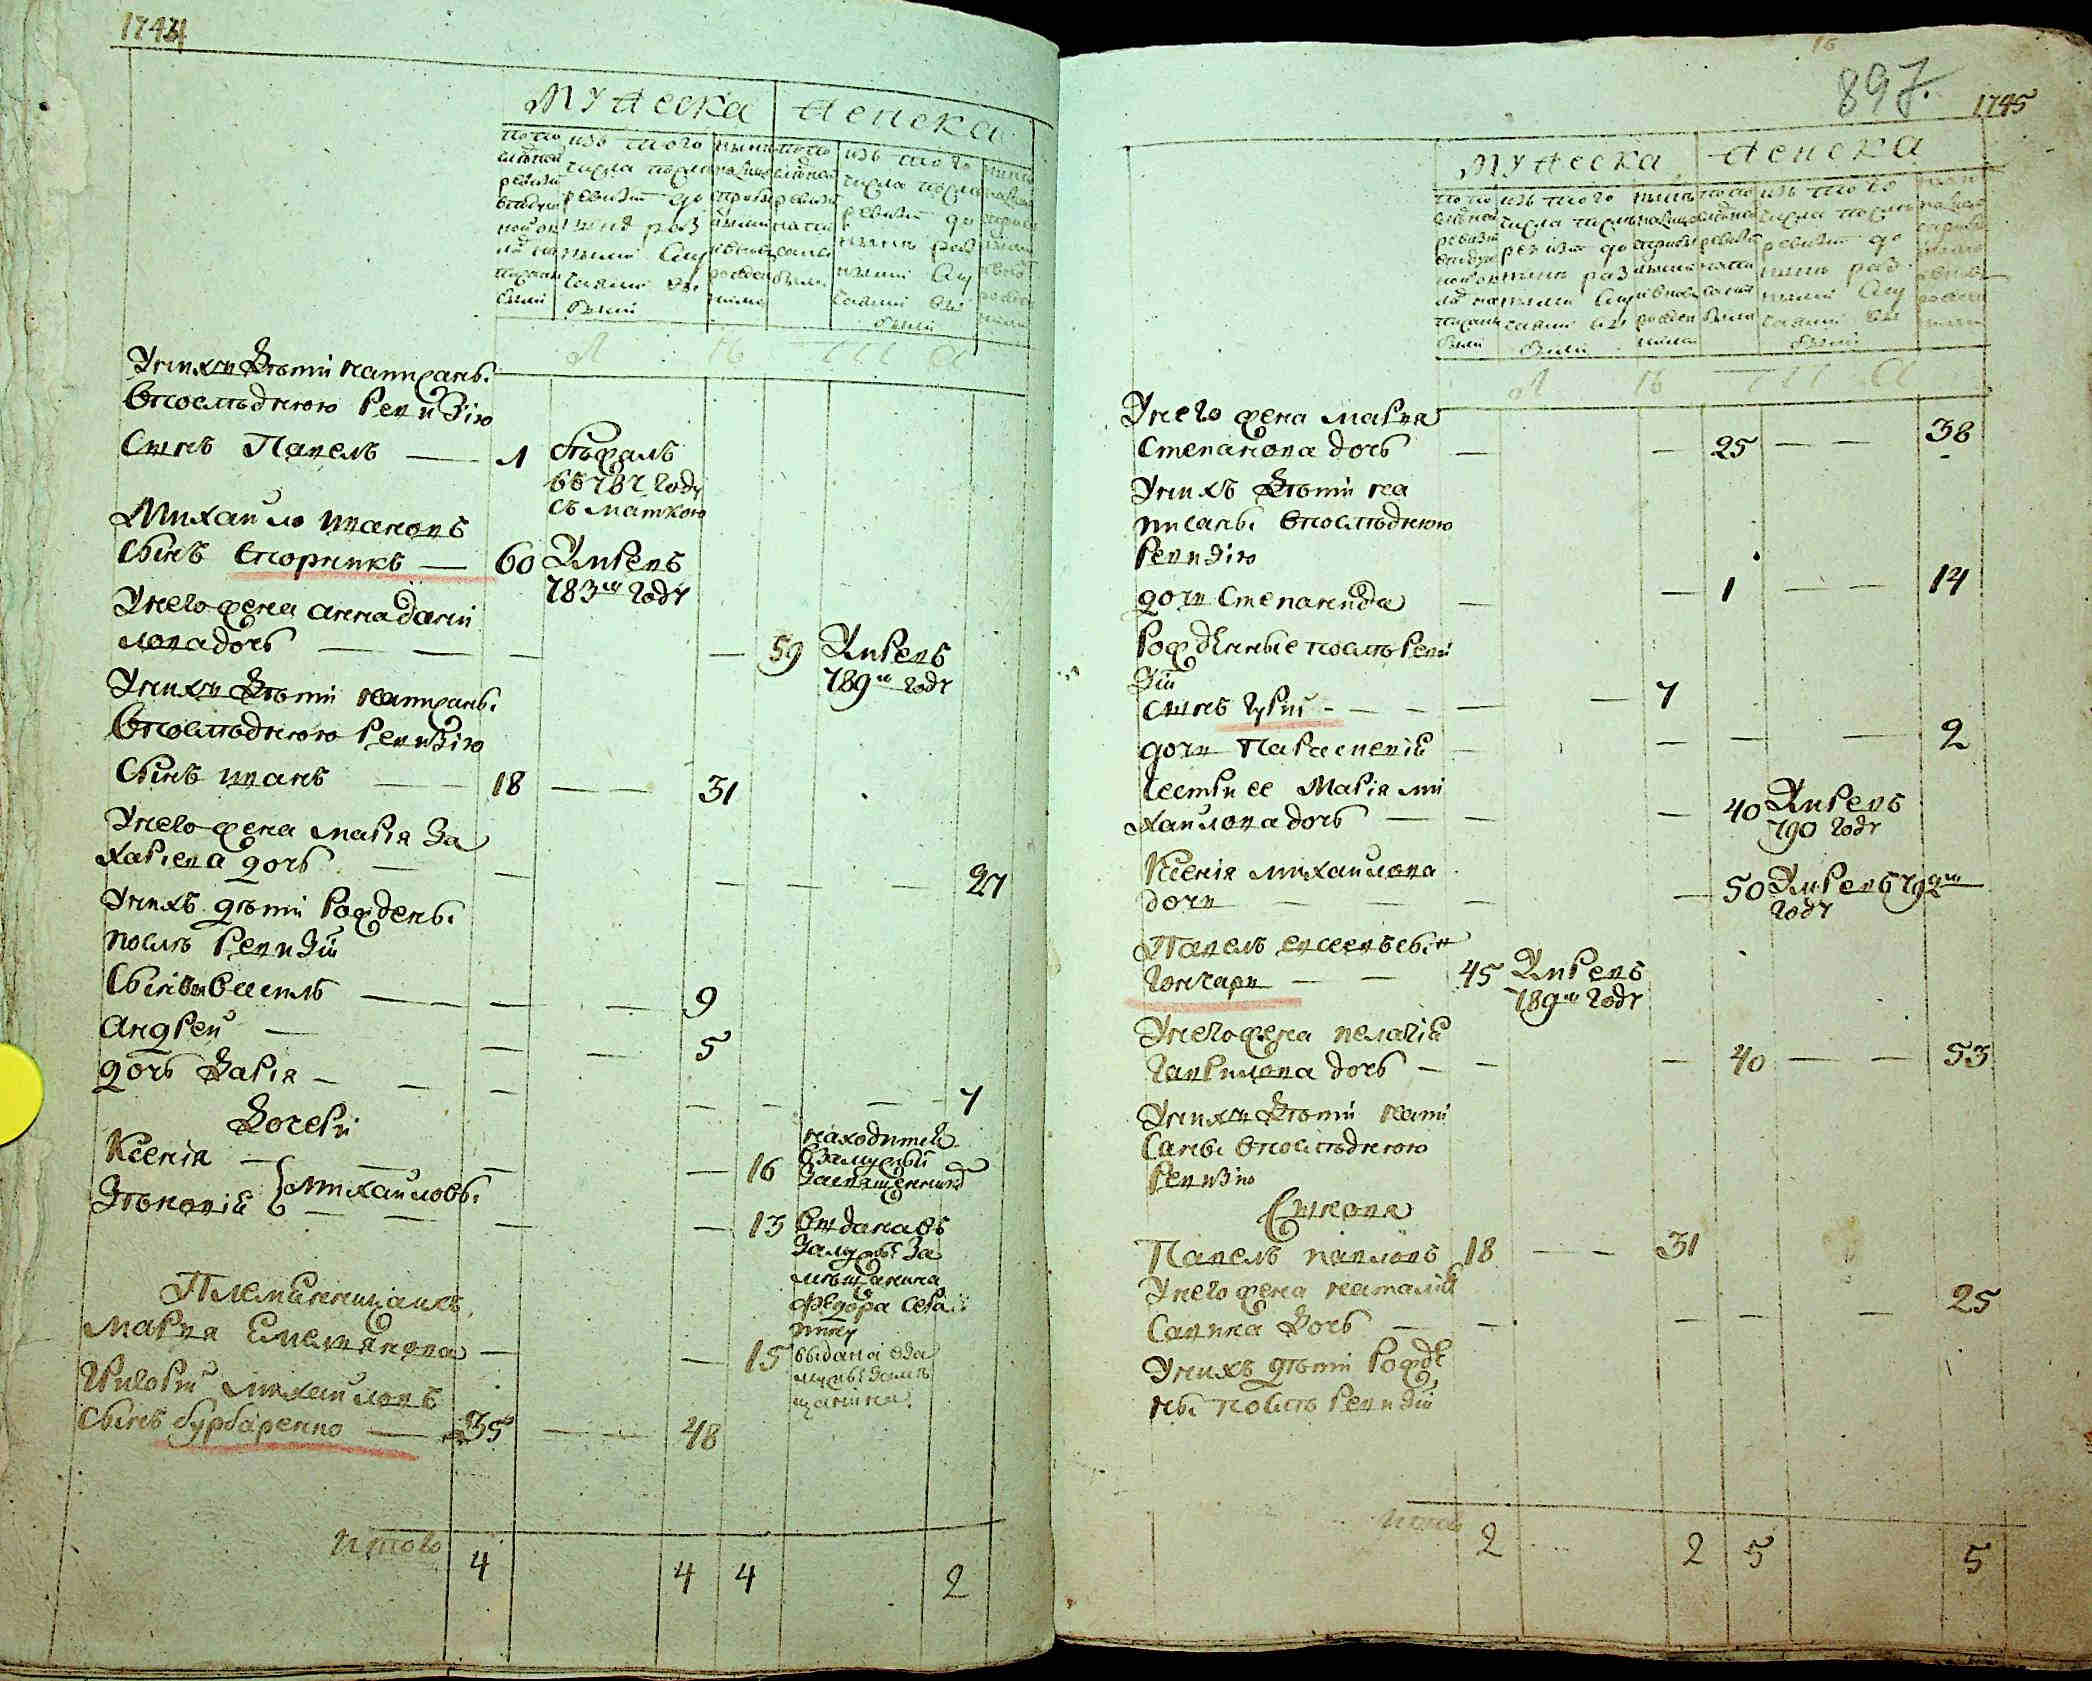 1744
Мужеска Женска
по по
следней
ревизии
в подуш
ной ок
ладъ на
писаны
были
изъ того
числа после
ревизии до
нынѣ раз
ными слу
чаями вы
были
нынѣ
налицо
съ прибы
лыми
и вновь
рожден
ными
по по
следней
ревизии
написаны
были
изъ того
числа после
ревизии до
нынѣ раз
ными слу
чаями вы
были
Л Ѣ Т А
У нихъ дѣти написанъ:
в последнюю ревизію
Сынъ Павелъ — 1 бѣжалъ
въ 787 году
съ маткою
Михайло Ивановъ
Сынъ Вторникъ — 60 Умеръ
783го году
У него жена Анна Дани
лова дочь — 59 Умеръ
789го году
У нихъ дѣти написанъ:
в последнюю ревизію
Сынъ Иванъ — 18 — 31
У него жена Марія За
харіева дочь — 27
У нихъ дѣти рождены:
послѣ ревизіи
Сынъ — 9
Андрей — 5
дочь Дарія — 7
Дочери
Ксенія — 16 находится
взамужьи
Михайловы:
13 отдана въ
замужъ за
мѣщанина
Федора
Племянница ихъ
Марѳа Емельянова — 15 выдана въ за
мужъ за мѣ
щанина
Григорій Михайловъ
Сынъ Бурбаренко — 35 — 48
Итого 4 4 4 2
16
897.
1745
Мужеска Женска
по по
следней
ревизии
в подуш
ной ок
ладъ на
писаны
были
изъ того
числа после
ревизии до
нынѣ раз
ными слу
чаями вы
были
нынѣ
налицо
съ прибы
лыми
и вновь
рожден
ными
по по
следней
ревизии
написаны
были
изъ того
числа после
ревизии до
нынѣ раз
ными слу
чаями вы
были
Л Ѣ Т А
У него жена Марѳа
Степанова дочь — 25 — 38
У нихъ дѣти на
писаны в последнюю
ревизію
дочь Степанида — 1 — 14
Рожденые послѣ реви
зіи
сынъ Гурій — 7
дочь Параскевія — 2
Сестри ее Марія Ми
хайлова дочь — 40 Умеръ
790 году
Ксенія Михайлова
дочь — 50 Умеръ 792го
году
Павелъ Евсеевъ сын
Гончаръ — 45 Умеръ
789го году
У него жена Пелагія
Гаврилова дочь — 40 — 53
У нихъ дѣти напи
саны в последнюю
ревизію
Сыновя
Павелъ Павловъ 18 — 31
У него жена Наталія
Савина дочь — 25
У нихъ дѣти рожде
ны: послѣ ревизіи
Итого 2 2 5 5